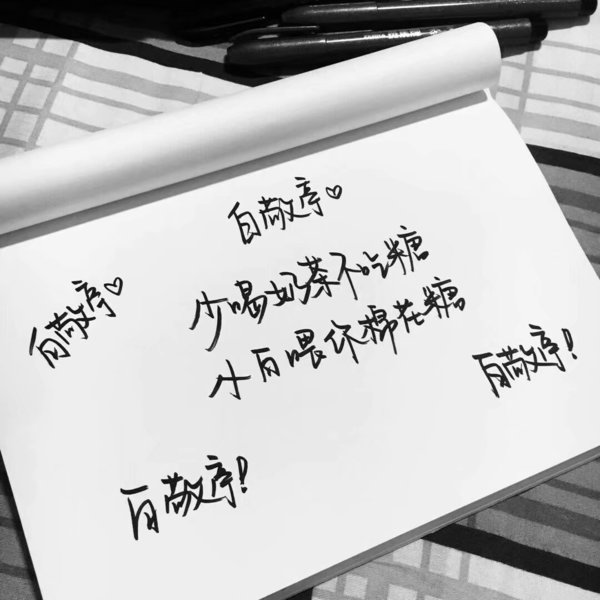 白敬亭♡
少喝奶茶不吃糖
小白喂你棉花糖
白敬亭♡
白敬亭!
白敬亭!